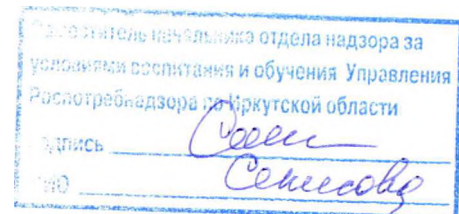 Заместитель начальника отдела надзора за
условиями воспитания и обучения Управления
Роспотребнадзора по Иркутской области
подпись
ФИО